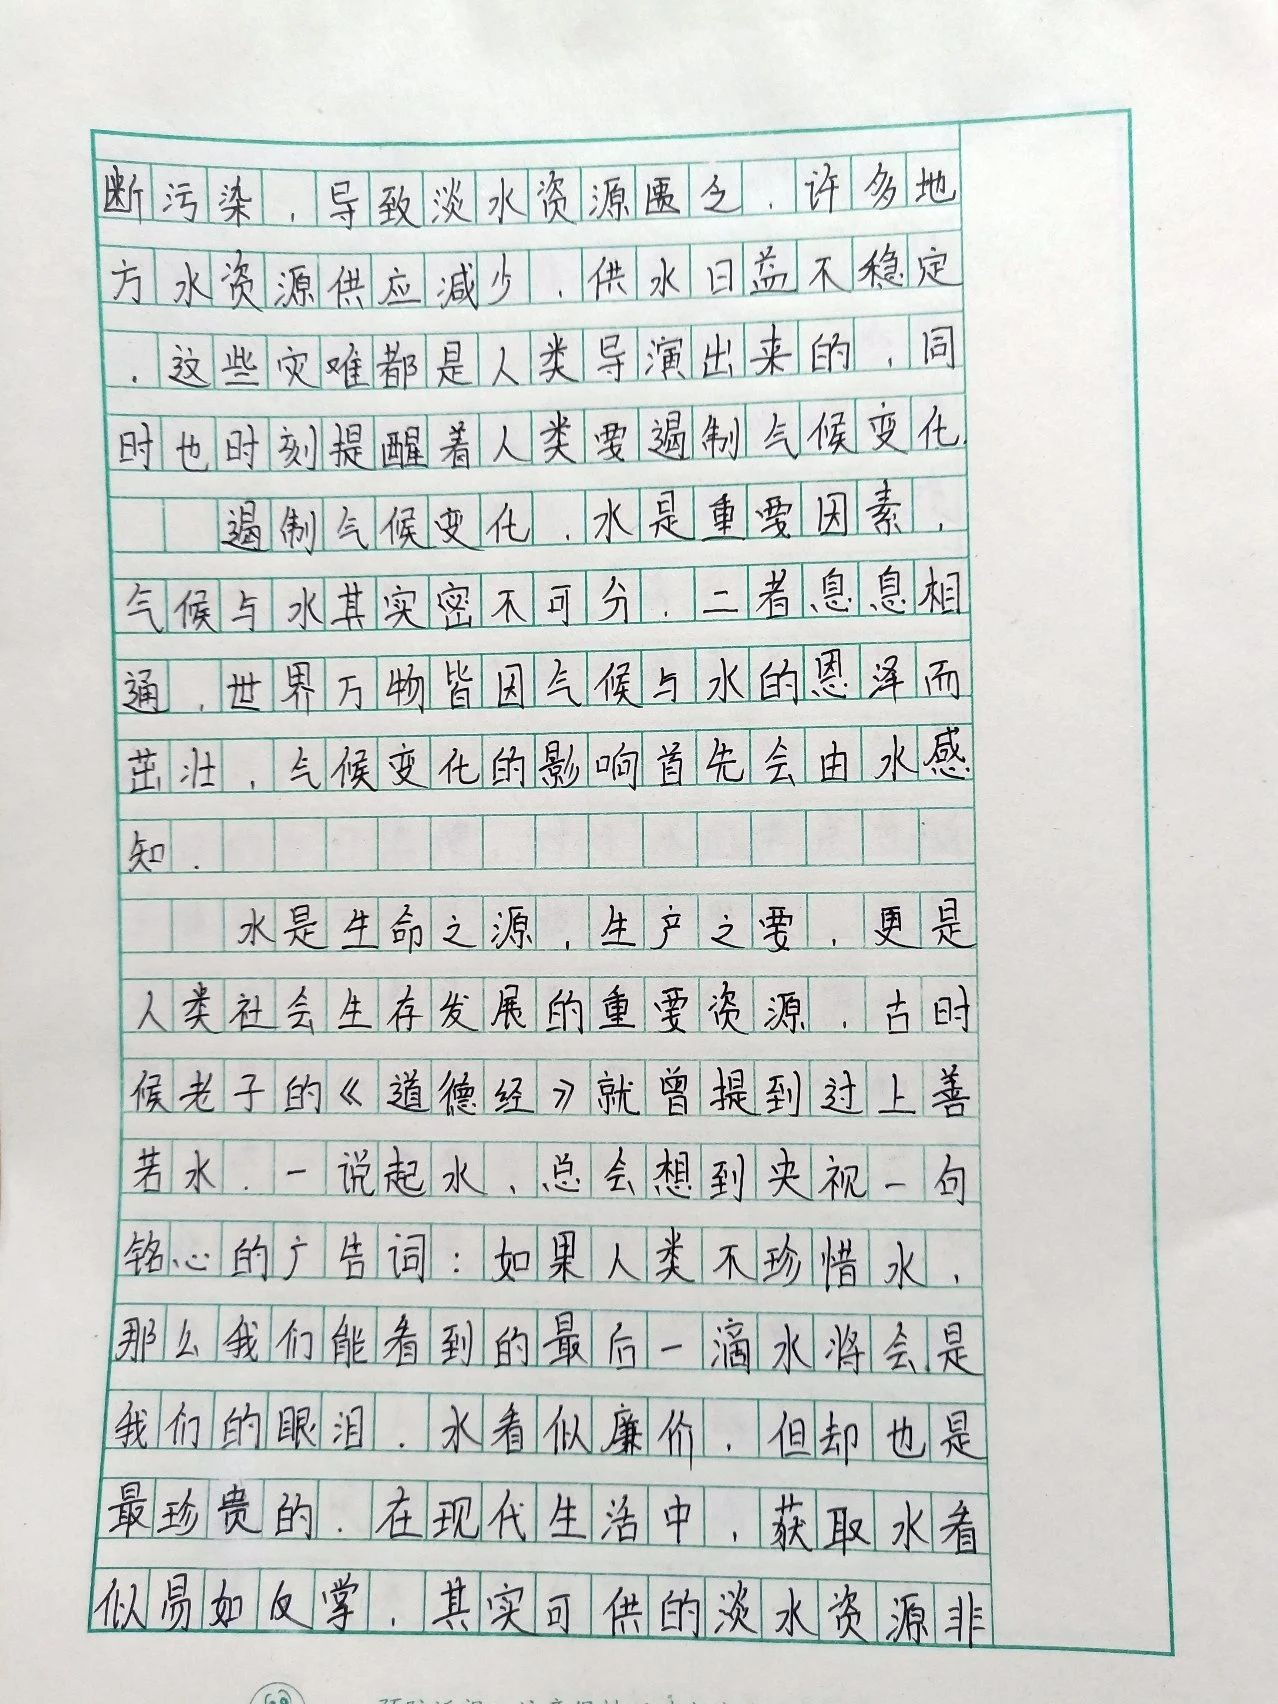 断污染，导致淡水资源匮乏，许多地
方水资源供应减少，供水日益不稳定
．这些灾难都是人类导演出来的，同
时也时刻提醒着人类要遏制气候变化．
遏制气候变化，水是重要因素，
气候与水其实密不可分．二者息息相
通，世界万物皆因气候与水的恩泽而
茁壮，气候变化的影响首先会由水感
知．
水是生命之源，生产之要，更是
人类社会生存发展的重要资源．古时
候老子的《道德经》就曾提到过上善
若水．一说起水、总会想到央视一句
铭心的广告词：如果人类不珍惜水，
那么我们能看到的最后一滴水将会是
我们的眼泪．水看似廉价，但却也是
最珍贵的．在现代生活中，获取水看
似易如反掌，其实可供的淡水资源非